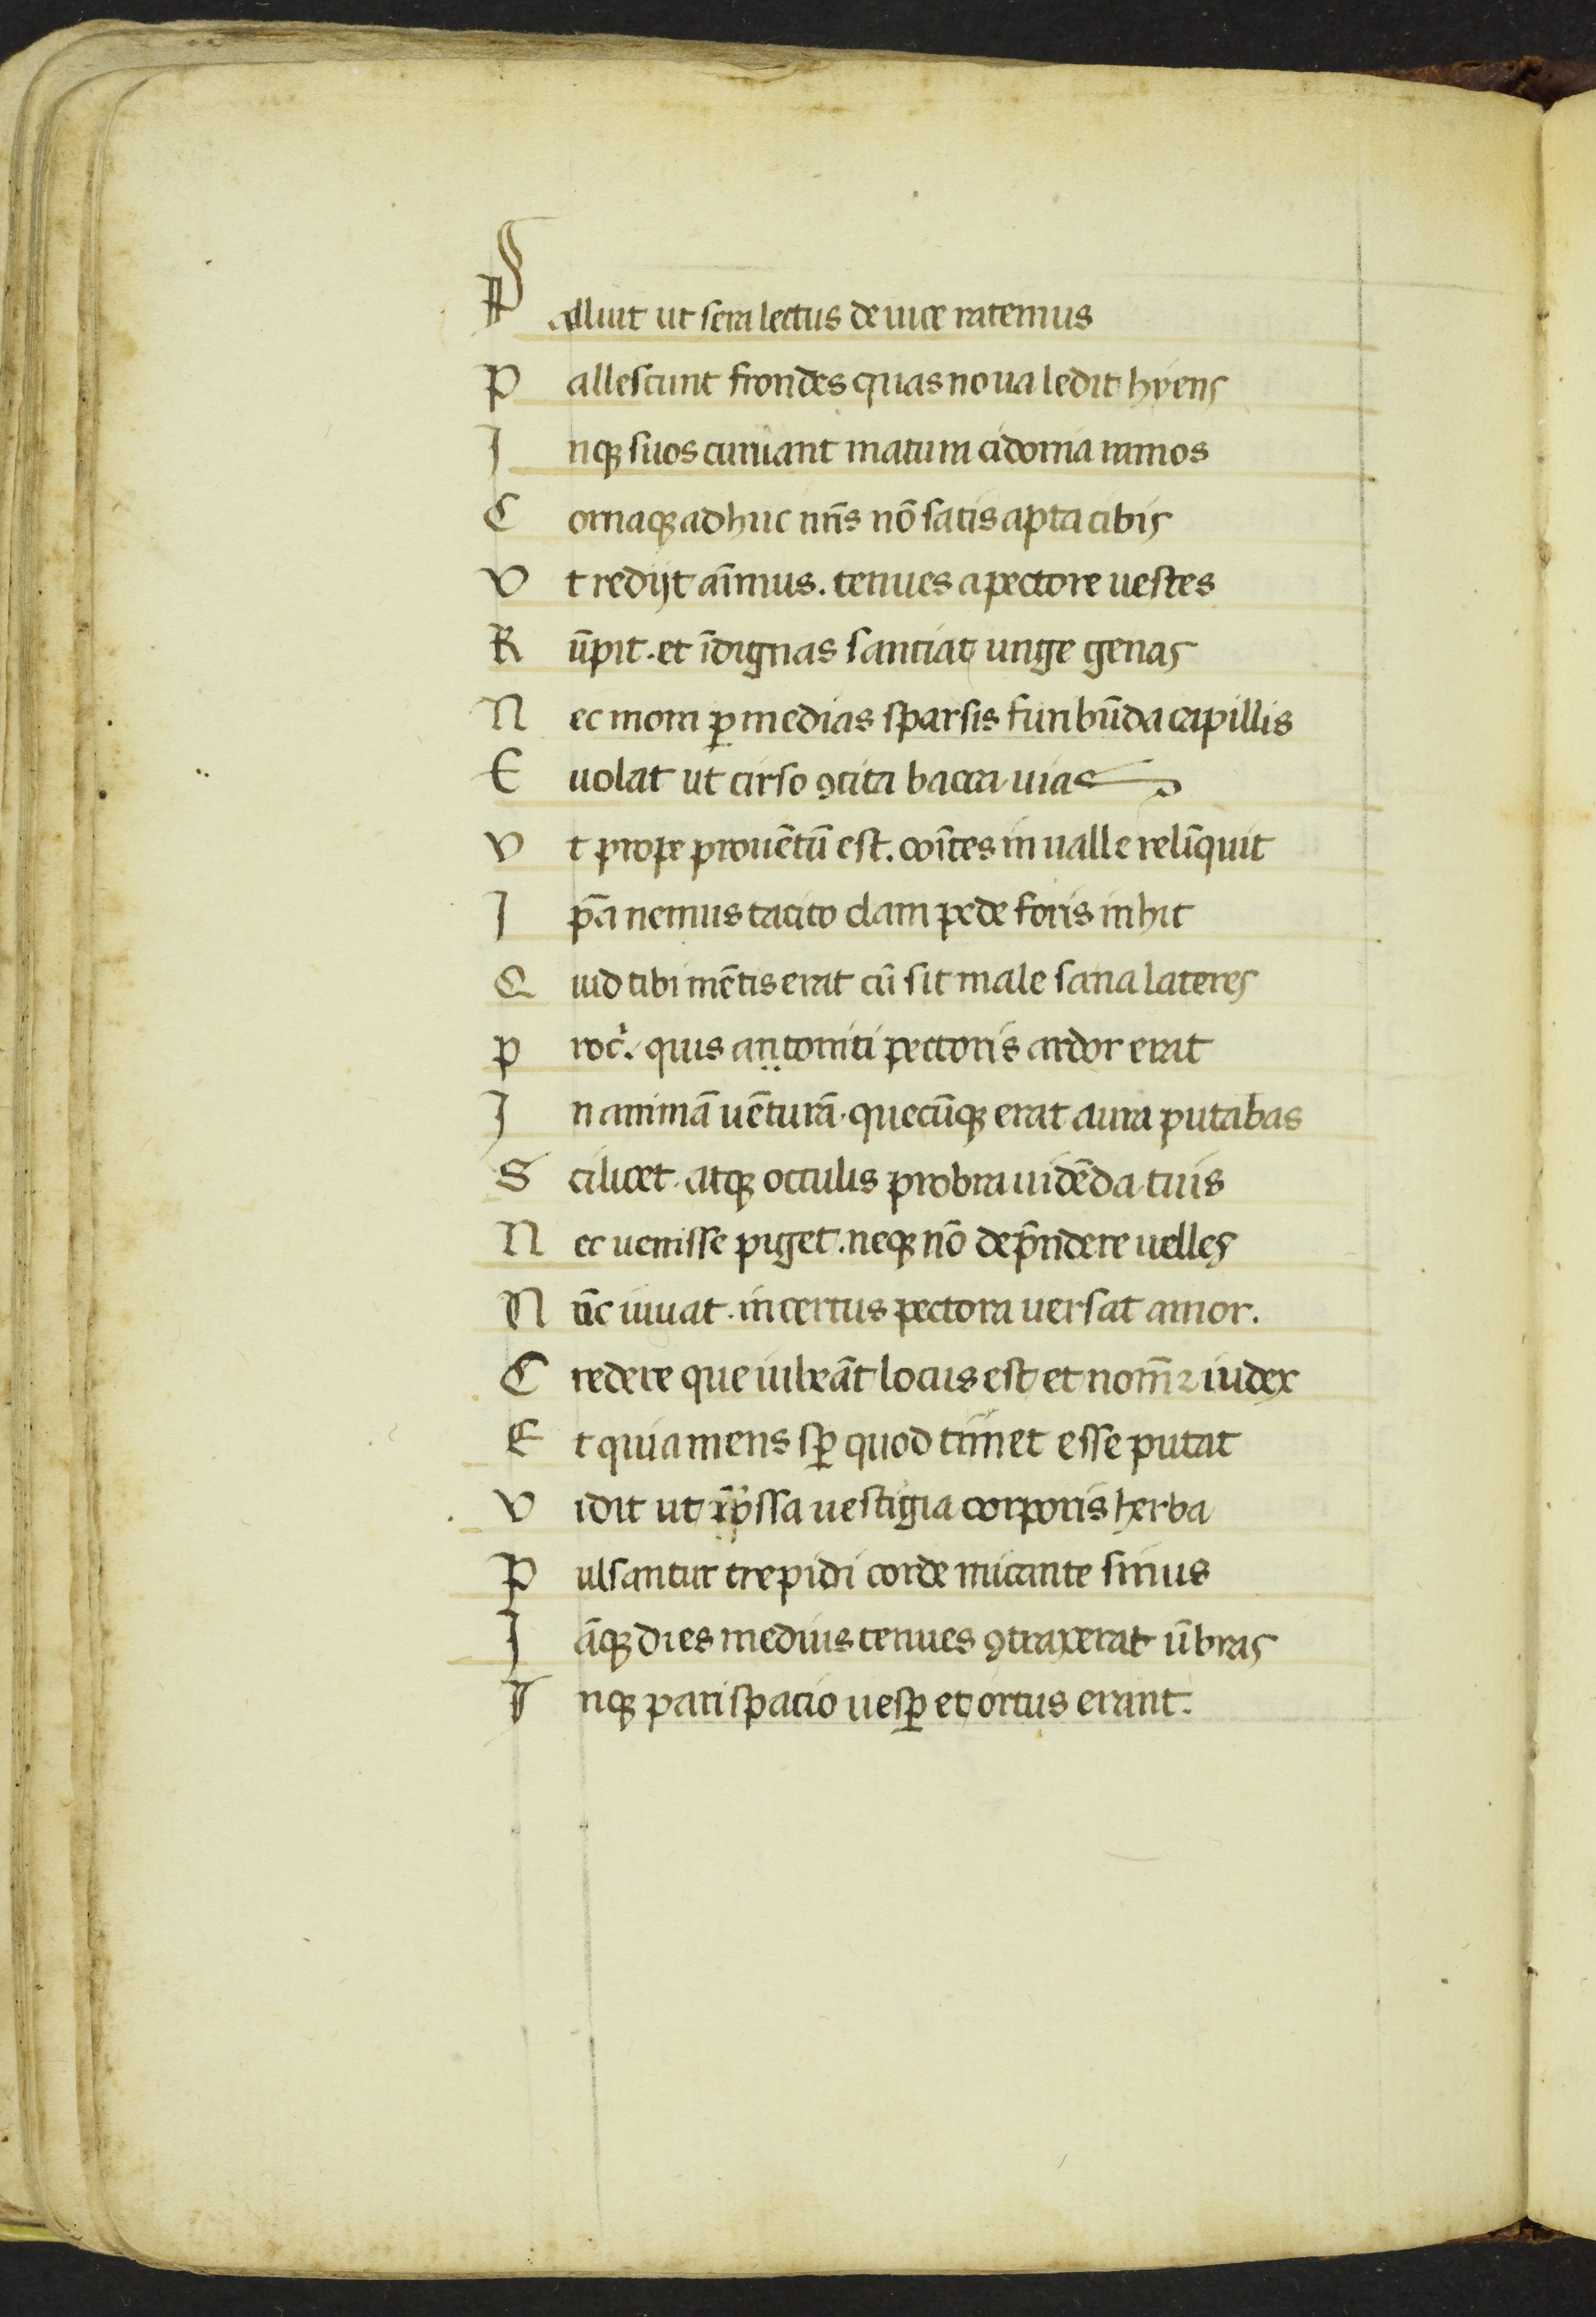 Palluit ut sera lectus de uice racemus
Pallescunt frondes quas noua ledit hyens
Inqꝫ suos curuant matura cidonia ramos
Cornaqꝫ adhuc nr̄is nō satis apta cibis
Vt redijt aīmus. tenues a pectore uestes
Rūpit. et īdignas sanciat unge genas
Nec mora ꝑ medias sparsis furibūda capillis
Euolat ut tirso ꝯcita bacca uias
Vt prope prouētū est. coītes in ualle relīquit
Ip̄a nemus tacito clam pede foris inhit
Quid tibi mētis erat cū sit male sana lateres
Procͬ. quis antoniti pectoris ardor erat
In animā uēturā. quecūqꝫ erat aura putabas
Scilicet. atqꝫ occulis probra uidēda tuis
Nec uenisse piget. neqꝫ nō dep̄ndere uelles
Nūc iuuat. incertus pectora uersat amor.
Credere que iubeāt locus est et nom̄ ⁊ iudex
Et quia mens sꝑ quod timet esse putat
Vidit ut oppssa uestigia corporis herba
Pulsantur trepidi corde micante sinus
Iāqꝫ dies medius tenues ꝯtraxerat ūbras
Inqꝫ pari spacio uesꝑ et ortus erant.